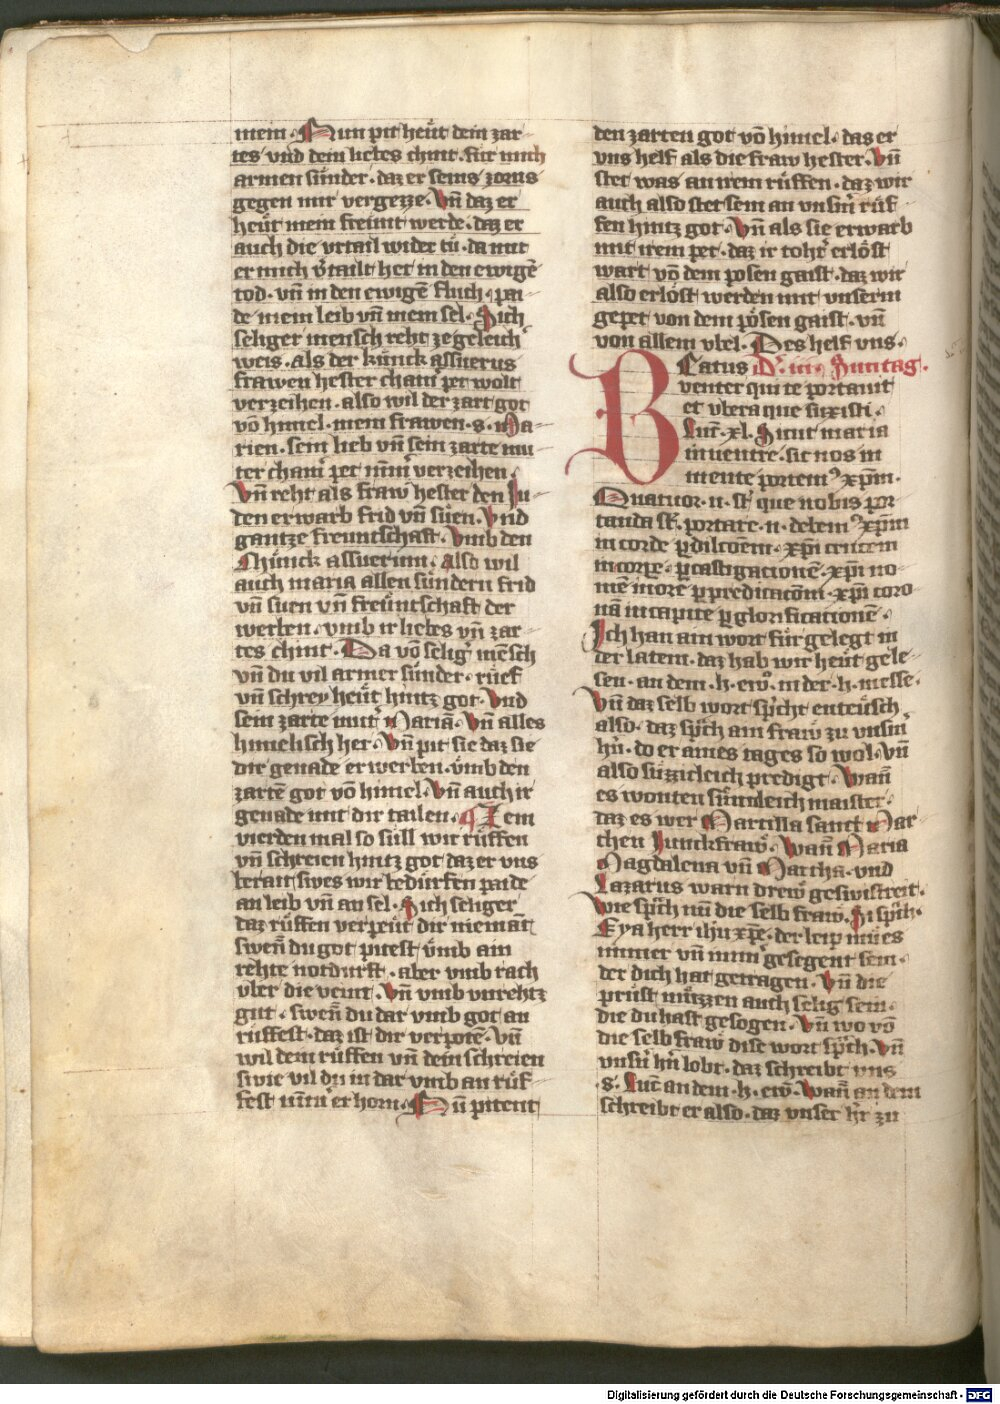 mein. Nun pit heut dein zar-
tes vnd dein liebes chint. für mich
armen sünder. daz er seins zorns
gegen mir vergezze. Vn̄ daz er
heut mein freunt werde. daz er
auch die vrtail wider tů. da mit
er mich v̓tailt het in den ewigē
tod. vn̄ in den ewigē fluch. pai-
de mein leib vn̄ mein sel. Sich
seliger mensch reht ze geleich
weis. als der künck assuerus
frawen hester cham per wolt
verzeihen. also wil der zart got
vō himel. mein frawen. s. Ma-
rien. sein lieb vn̄ sein zarte mu-
ter chain̓ pet nim̄̓ verzeihen.
Vn̄ reht als fraw hester den Ju-
den erwarb frid vn̄ sůen. Vnd
gantze freuntschaft. Vmb den
Chünck assuerum. also wil
auch maria allen sündern frid
vn̄ suen vn̄ freuntschaft der
werben. vmb ir liebes vn̄ zar-
tes chint. Da vō selig̓ mēsch
vn̄ du vil armer sünder. rüef
vn̄ schrey heut hintz got. Vnd
sein zarte mut̓ Mariā. Vn̄ alles
himelisch her. Vn̄ pit sie daz sie
dir genade erwerben. vmb den
zartē got vō himel. Vn̄ auch ir
genade mit dir tailen. ¶ Item
vierden mal so süll wir rüffen
vn̄ schreien hintz got daz er vns
berait swes wir bedürfen paide
an leib vn̄ an sel. Sich seliger
daz rüffen verpeut dir niemāt
swen̄ du got pitest vmb ain
rehte notdurft. aber vmb rach
vber die veint. Vn̄ vmb vnrehtz
gut. swen̄ du dar vmb got an
rüffest. daz ist dir verpotē. Vn̄
wil dein rüffen vn̄ dein schreien
swie vil du in dar vmb an rüf-
fest nim̄̓ erhorn. Nū pitent
den zarten got vō himel. das er
vns helf als die fraw hester. Vn̄
stet was an irem rüffen. daz wir
auch also stet sein an vnsm̓ rüf-
fen hintz got. Vn̄ als sie erwarb
mit irem pet. daz ir toht̓ erlöst
wart vō dem posen gaist. daz wir
also erlöst werden mit vnserm
gepet von dem pösen gaist. vn̄
von allem vbel. Des helf vns.
Beatus Dr. iii. Suntag.
venter qui te portauit
et vbera que suxisti.
Luc̄. xi. Sicut maria
in uentre. sic nos in
mente portem⁹ xp̄m.
Quatuor. n. st̄ que nobis por-
tanda st̄. portare. n. debem⁹ xp̄m
in corde ꝑ dilcōem. xp̄i crucem
in corpe. ꝑ castigacionē. xp̄i no-
mē in ore ꝑ predicacōm. xp̄i coro-
nā in capite ꝑ glorificationē.
Ich han ain wort für gelegt in
der latein. daz hab wir heut gele-
sen. an dem. h. ew̓. in der. h. messe.
Vn̄ daz selb wort sp̓cht enteusch
also. daz sp̓ch ain fraw zu vnsm̓
hn̓. do er aines tages so wol. vn̄
also süzzicleich predigt. Wan̄
es wonten sümleich maister.
daz es wer Martilla sanct Mar-
then Junckfraw. Wan̄ Maria
Magdalena vn̄ Martha. vnd
Lazarus warn drew geswistreit.
Wie sp̓ch nu die selb fraw. Si sp̓ch.
Eya herr ihū xp̄e. der leip mües
immer vn̄ mim̓ gesegent sein.
der dich hat getragen. Vn̄ die
prüst müzzen auch selig sein.
die du hast gesogen. Vn̄ wo vō
die selb fraw dise wort sp̓ch. Vn̄
vnsn̓ hn̓ lobt. daz schreibt vns
.S. Luc̄ an dem. h. ew̓. Wan̄ an dem
schreibt er also. daz vnser hr̓ zu
Digitalisierung gefördert durch die Deutsche Forschungsgemeinschaft - DFG